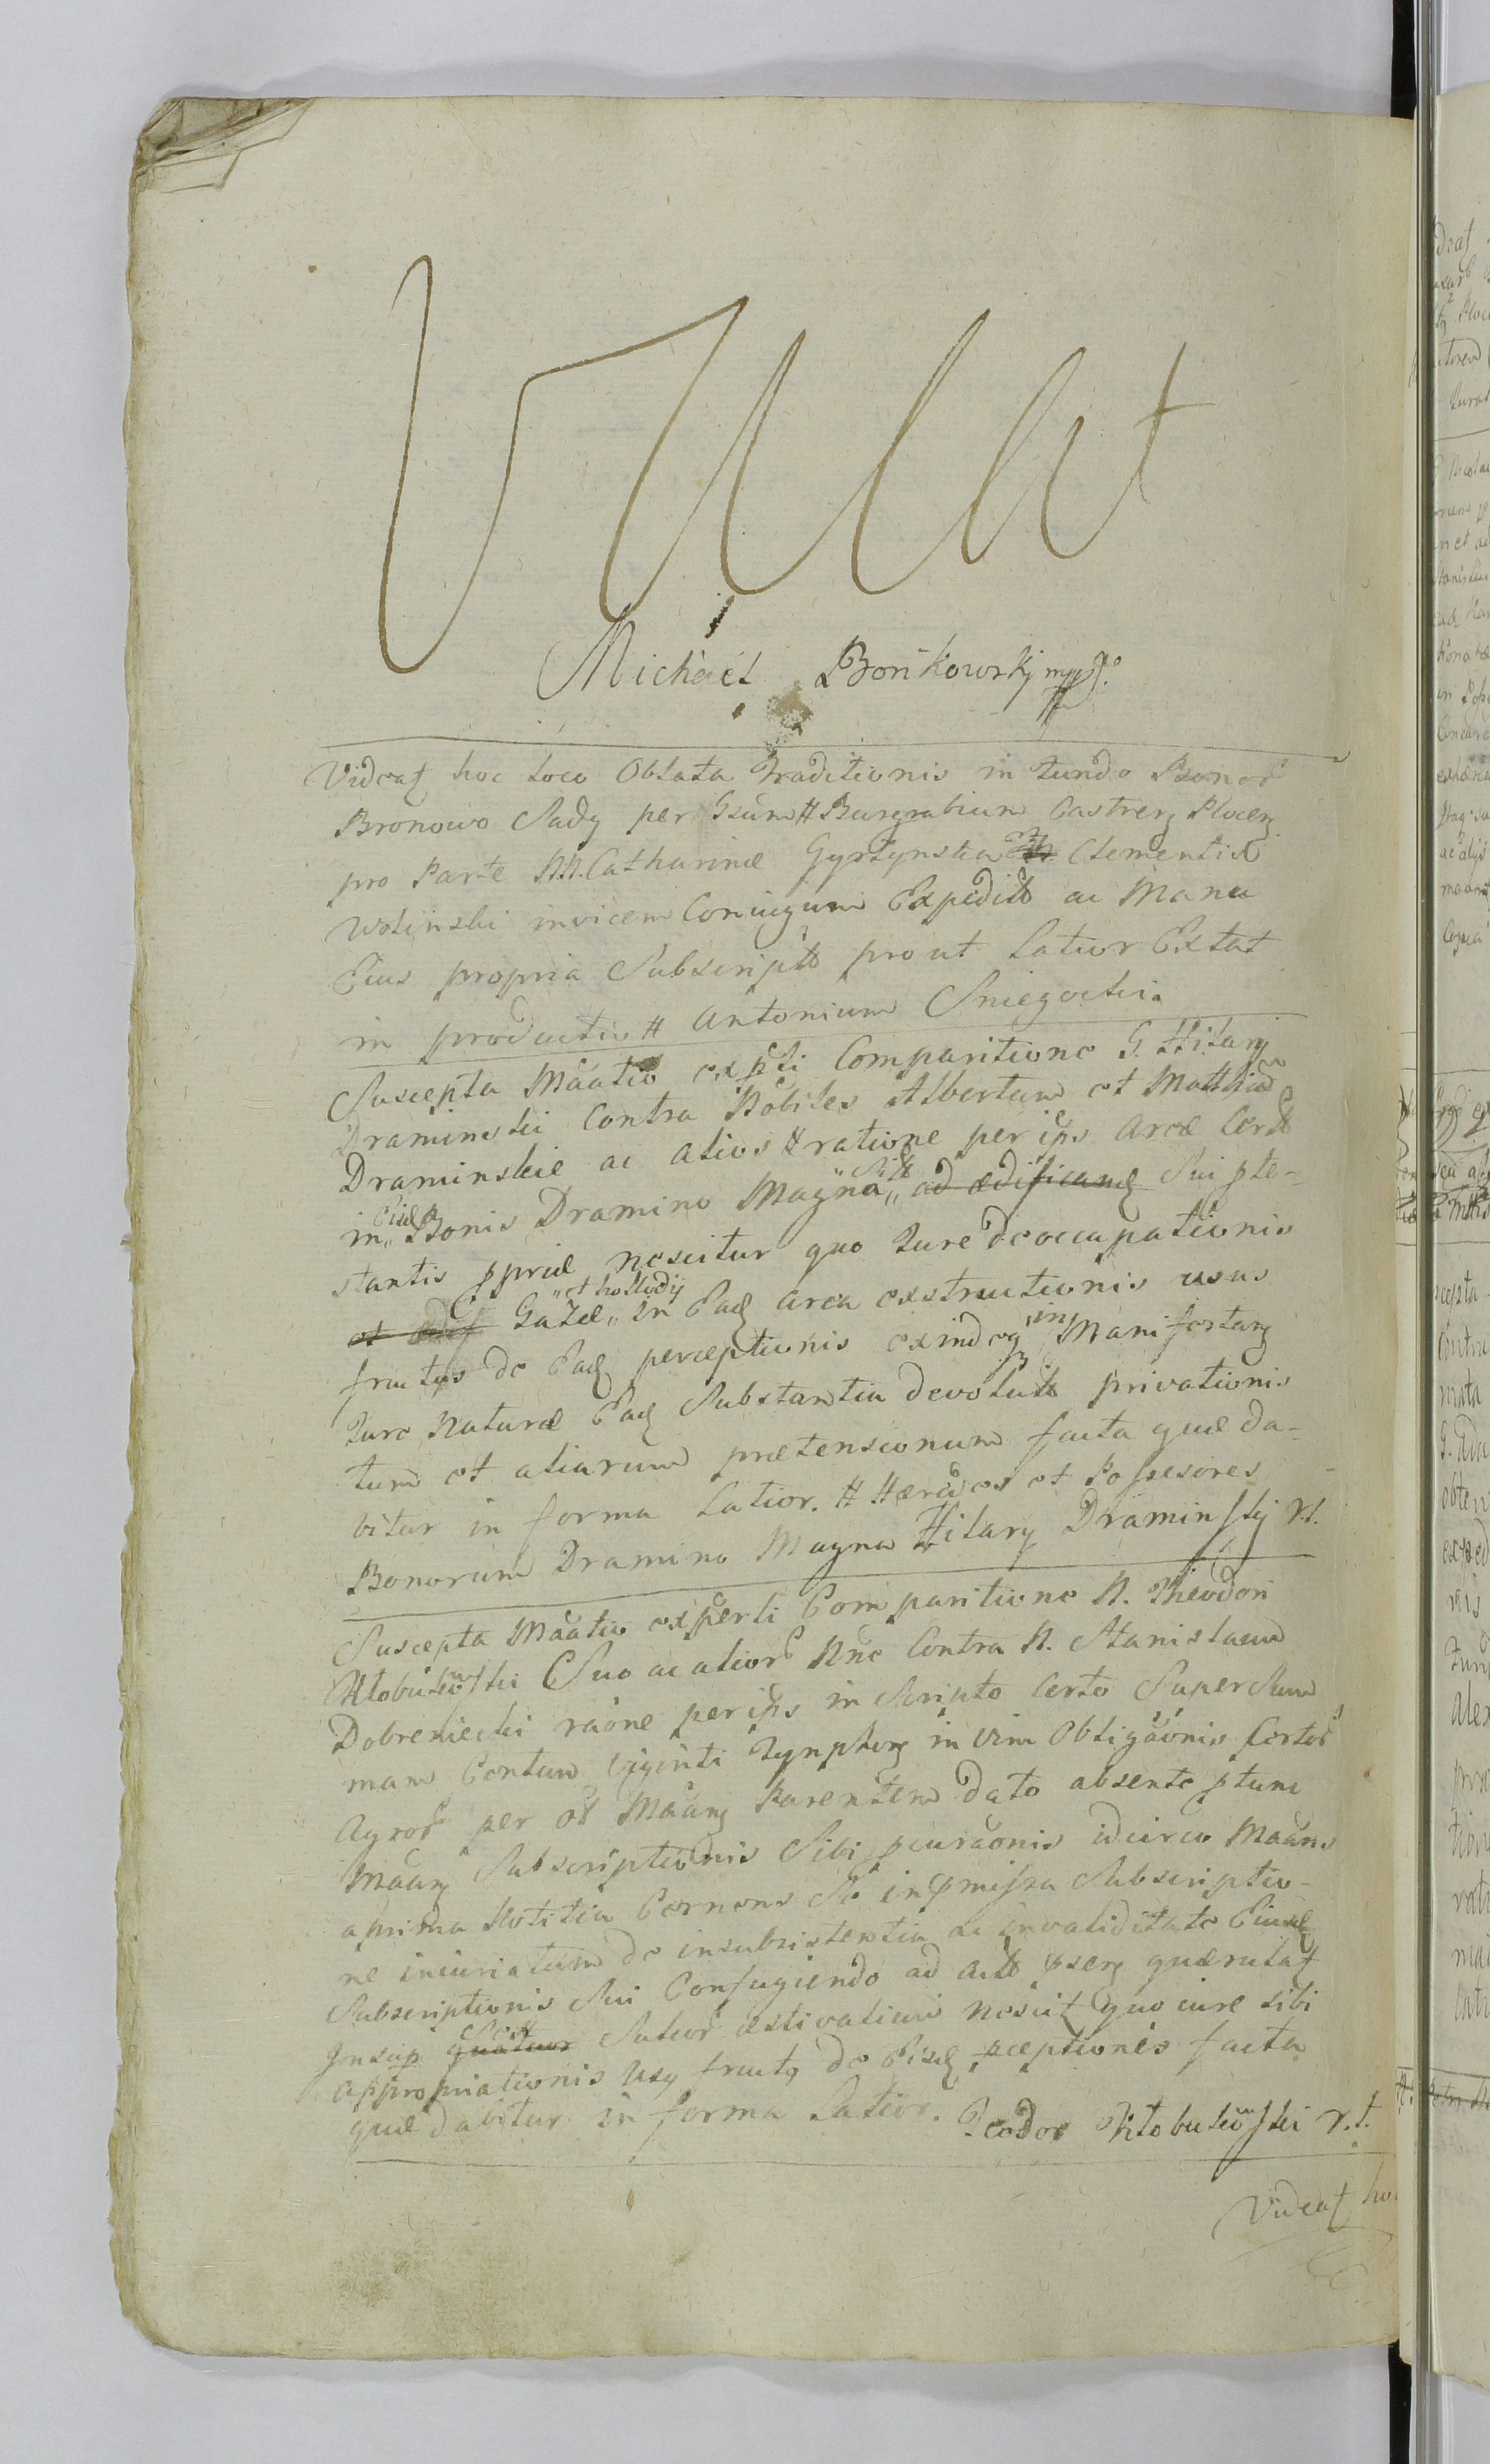 Vacat
Michael Bońkowskj mpp
Videat hoc loco Oblata Traditionis in fundo Bonor
Bronowo Sady per Gsum # Burgrabium Castren Plocen
pro Parte NN. Catharinæ Gyrtynska et Clementis
Wolinski invicem Coniugum Expedit ac Manu
Eius propria Subscript prout Latior Extat
in productio # Antonium Sniegocki.
Suscepta Maatio expti Comparitione G. Hilary
Draminski Contra Nobiles Albertum et Matthiæ
Draminskie ac alios # ratione per ips areæ Cert
in Eius Bonis Dramino Magna Sit ad ædificand Sui ple-
stantis ppriæ noscitur quo Jure deoccupationis
et Gazæ et hollody in Ead area exstructionis usus
fructus de Ead perceptionis exindeq in Manifestan
Jure Naturæ Ead Substantia devolut privationis
tum et aliarum prætensionum facta quæ da-
bitur in forma Latior. # Hæredes et Possesores
Bonorum Dramino Magna Hilary Draminskj r.s.
Suscepta Maatio experti Comparitione N. Theodori
Kłobukowski Suo ac alior Nne Contra N. Stanislaum
Dobreniecki raone per ips in Scripto Certo Super Sum
mam Centum Viginti Tynphon in vim Obligaonis Certor
Agror per ol Maan Parentem dato absente ptum
Maan Subscriptionis Sibi pcuraonis idcirco Maans
a prima Notitia Cernens Se in pmissa Subscriptio-
ne iniuriatum de insubsistentia ac invaliditate Eiusd
Subscriptionis Sui Confugiendo ad Act psen quærulat
Jnsup quatuor Sulcor æstivalium noscit quo iure sibi
appropriationis Usq fructq de Eisd pceptionis facta
quæ dabitur in forma Latior. Teodor Kłobukowski r.s.
Videat ho